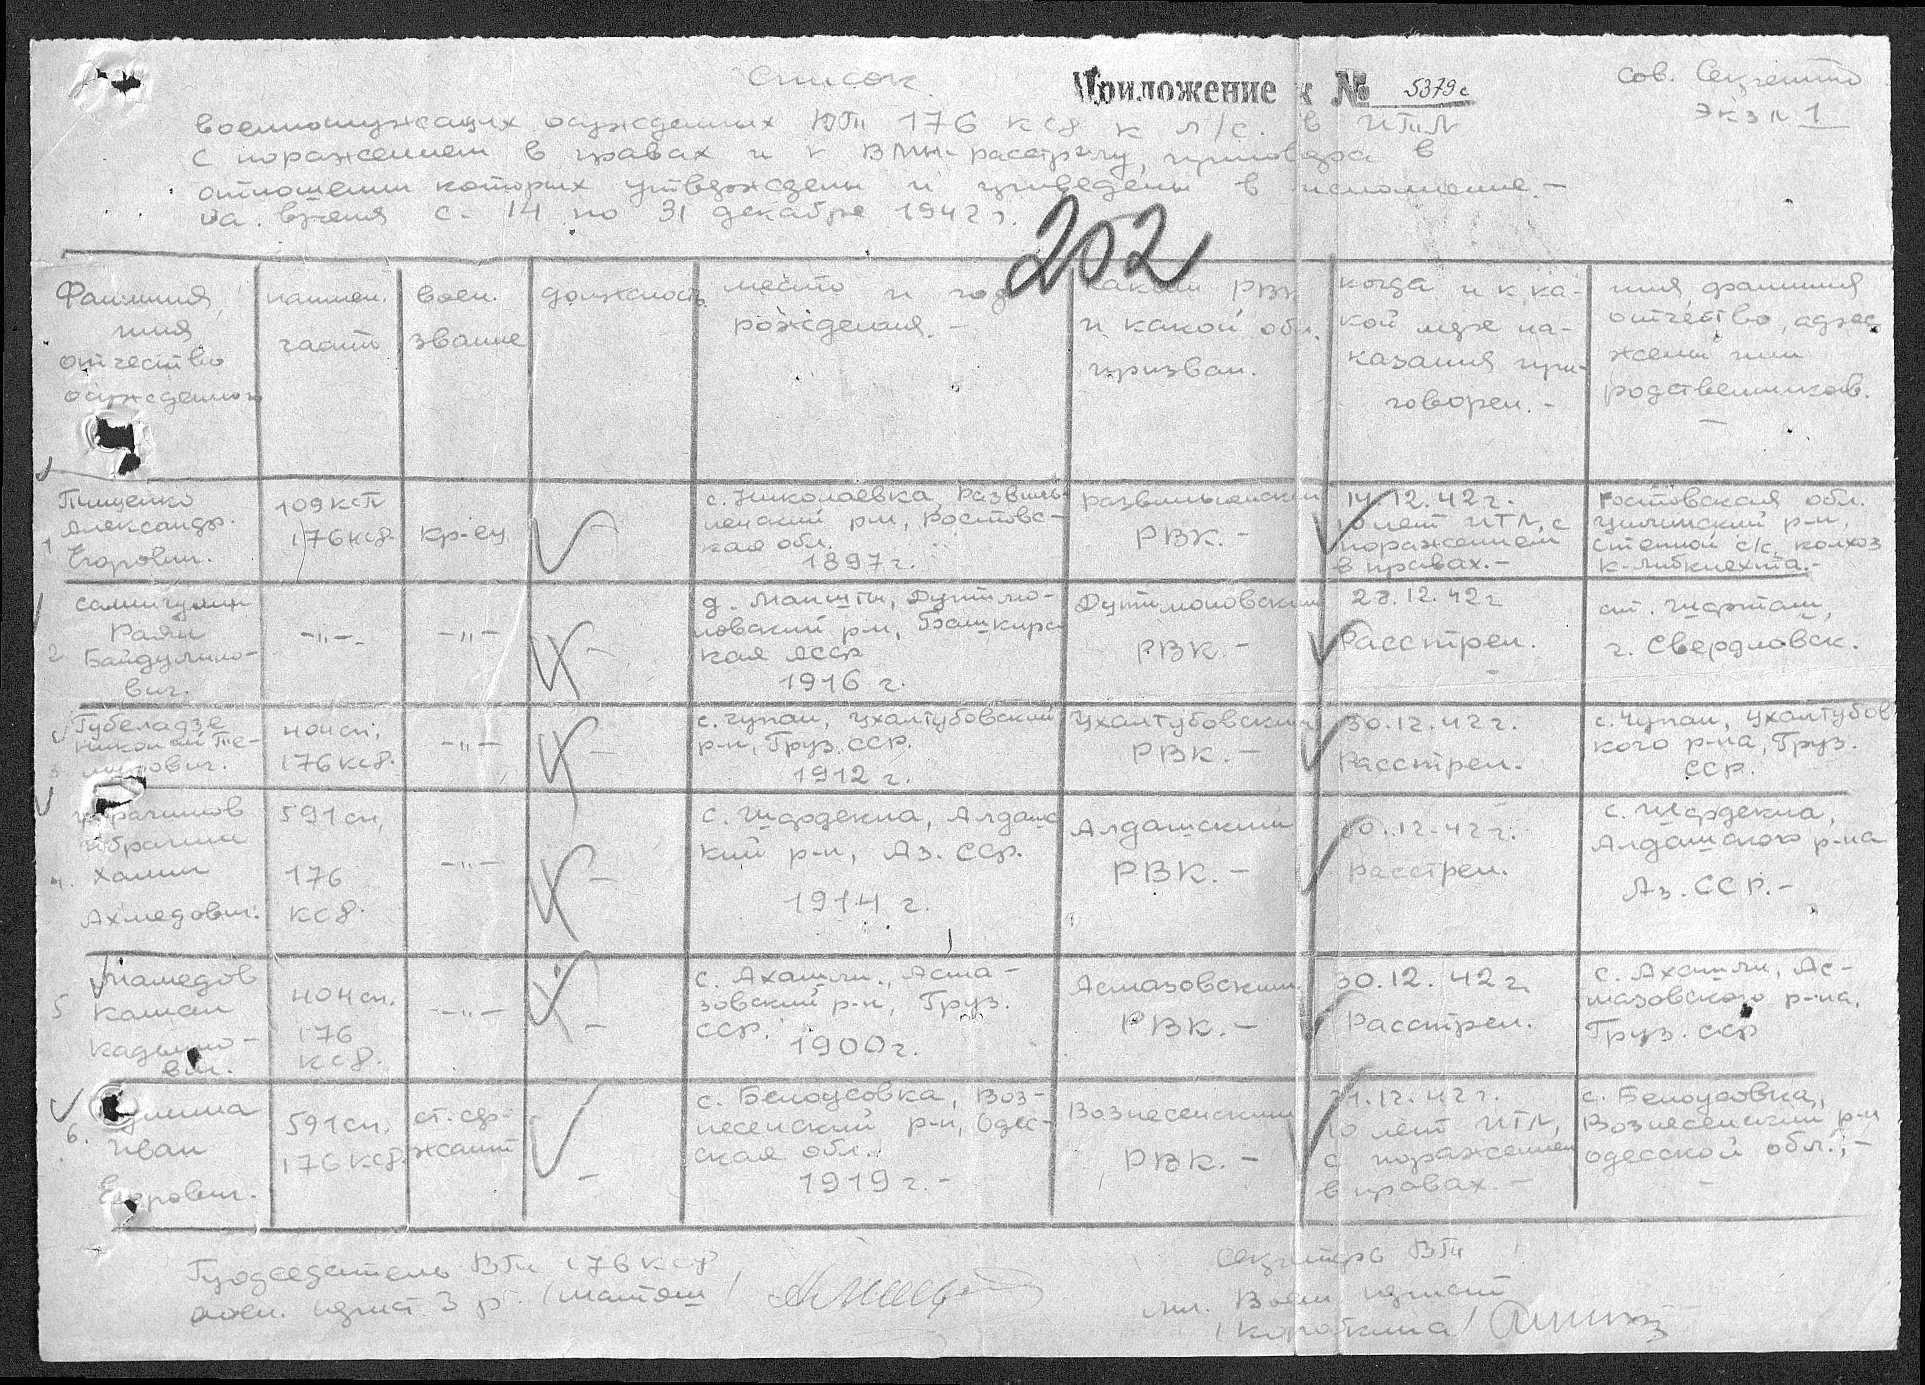 Список.
Приложение к № 5379с
Сов. Секретно
Экз № 1
военнослужащих осужденных ВТ 176 ксд к л/с. в ИТЛ
с поражением в правах и к ВМН-расстрелу, приговора в
отношении которых утверждены и приведены в исполнение. –
за время с 14 по 31 декабря 1942 г.
202
Фамилия, имя отчество осужденного
наимен. части
воен. звание
должность
место и год рождения. –
каким РВК и какой обл. призван.
когда и к какой мере наказания приговорен. –
имя, фамилия отчество, адрес жены или родственников. –
1
Пищенко
Александр.
Егорович.
109 ксп
176 ксд.
кр-ец
–
с. Николаевка, Развиль-
ненский р-н, Ростовс-
кая обл.
1897 г.
Развильненский
РВК. –
14.12.42 г.
10 лет ИТЛ, с
поражением
в правах. –
Ростовская обл.
Целинский р-н,
Степной с/с, колхоз
К-Либкнехта. –
2
Раян
Байдулино-
вич.
–"–
–"–
–
РВК. –
кая АССР
1916 г.
28.12.42 г
Расстрел.
–
ст. Шарташ,
г. Свердловск.
3
Губеладзе
Николай
404 сп,
176 ксд.
–"–
–
с. Чупан, Цхалтубовский
р-н, Груз. ССР.
1912 г.
Цхалтубовский
РВК. –
30.12.42 г.
Расстрел.
с. Чупан, Цхалтубов
кого р-на, Груз.
ССР.
4.
Ибрагим
Халил
Ахмедович.
591 сп,
176
ксд.
–"–
–
с. Шордекна, Алдашс
кий р-н, Аз. ССР.
1914 г.
Алдашский
РВК. –
30.12.42 г.
Расстрел.
с. Шордекна,
Алдашского р-на
Аз. ССР. –
5
Мамедов
Каман
Кадымо-
вич.
404 сп.
176
ксд.
–"–
–
с. Ахашли, Асма-
зовский р-н, Груз.
ССР.
1900 г.
Асмазовский
РВК. –
30.12.42 г
Расстрел.
с. Ахашли, Ас-
мазовского р-на,
Груз. ССР
6.
Иван
Егорович.
591 сп.
176 ксд.
ст. сер-
жант
–
с. Белоусовка, Воз-
несенский р-н, Одес-
ская обл.
1919 г. –
Вознесенский
РВК. –
31.12.42 г.
10 лет ИТЛ,
с поражением
в правах. –
с. Белоусовка,
Вознесенский р-н
Одесской обл.; –
–
Председатель ВТ 176 ксд
воен. юрист 3 р. /Маташ/
Секретарь ВТ
мл. Воен юрист
/Короткина/